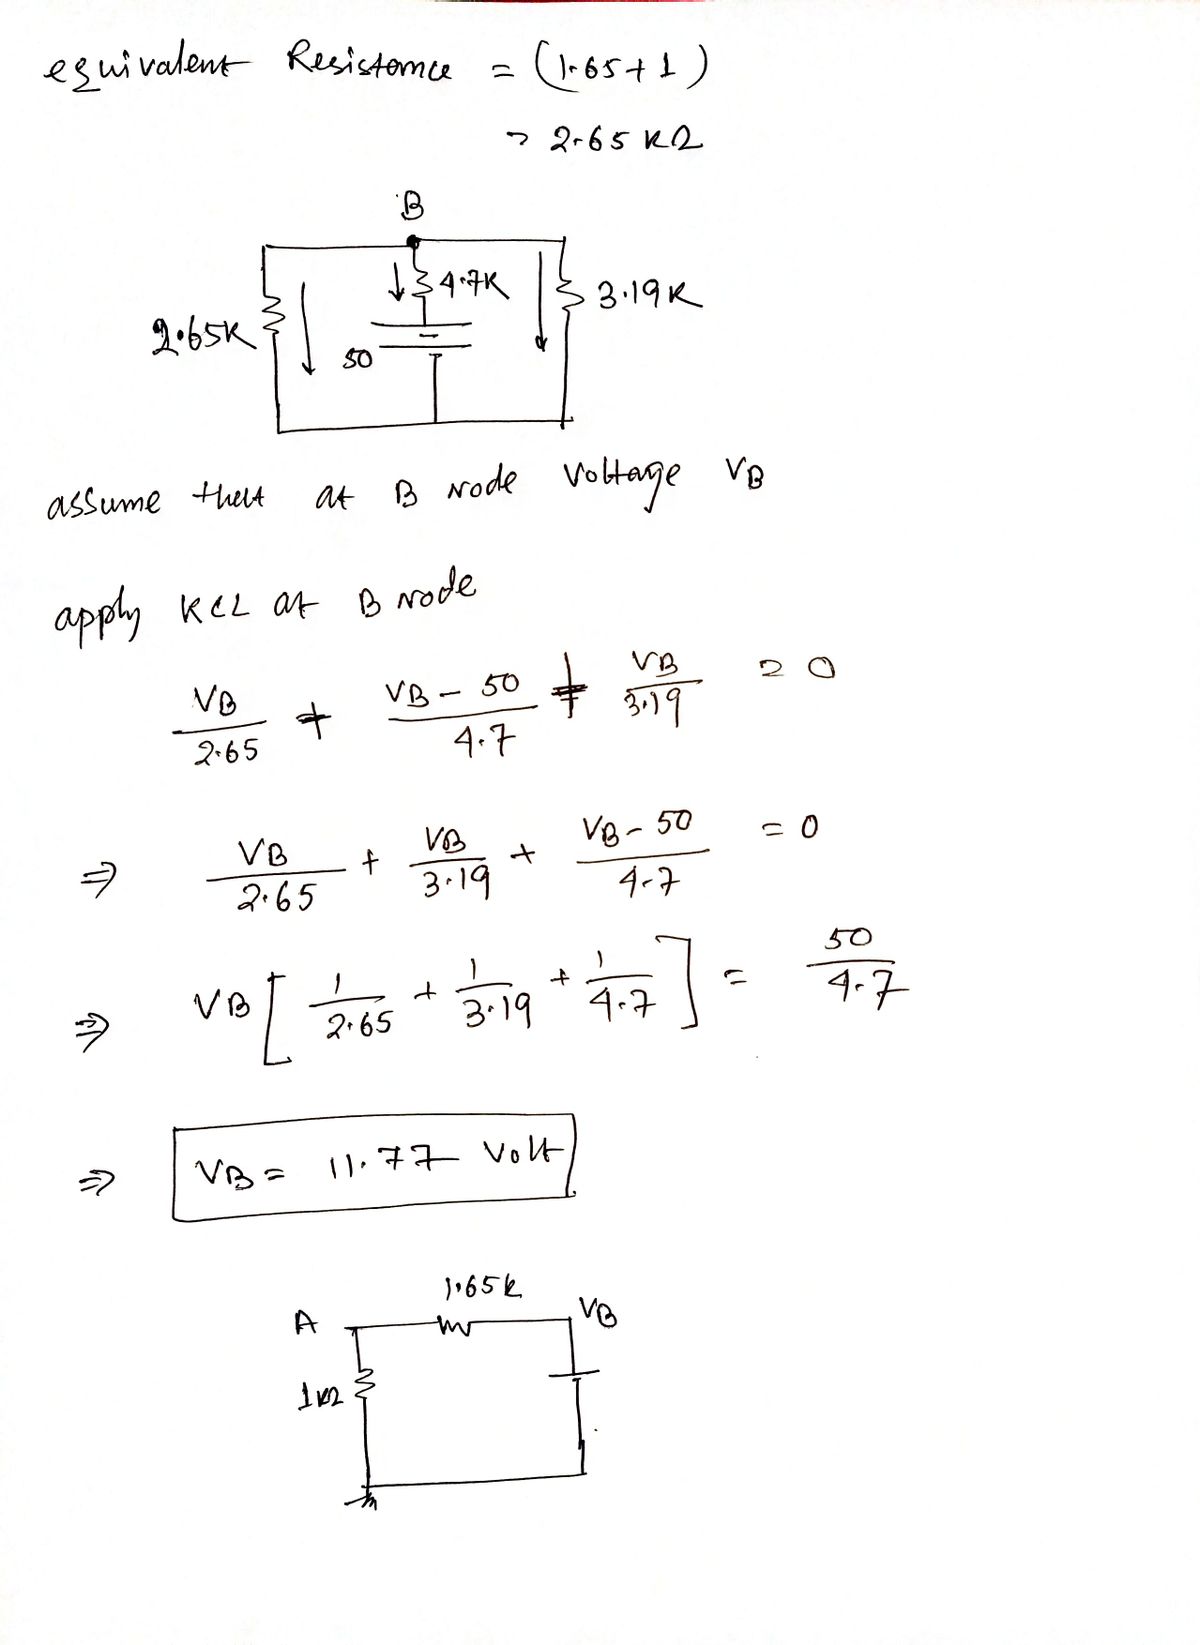 equivalent Resistance = (1.65+1)
= 2.65 KΩ
B
4.7K
3.19K
2.65K
50
assume that at B node Voltage VB
apply KCL at B node
VB/2.65 + (VB - 50)/4.7 + VB/3.19 = 0
⇒ VB/2.65 + VB/3.19 + (VB - 50)/4.7 = 0
⇒ VB [ 1/2.65 + 1/3.19 + 1/4.7 ] = 50/4.7
⇒ VB = 11.77 Volt
1.65k
A VB
1kΩ